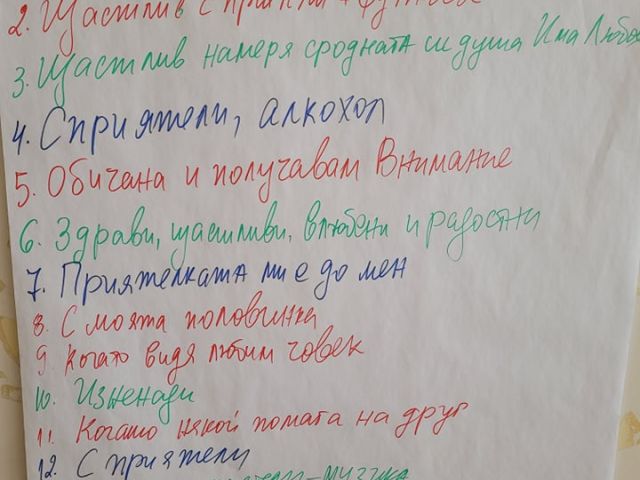 2. Щастлив с приятели +
3. Щастлив намеря сродната си душа Има
4. С приятели, алкохол
5. Обичана и получавам Внимание
6. Здрави, щастливи, влюбени и радостни
7. Приятелката ми е до мен
8. С моята половинка
9. Когато видя любим човек
10. Изненади
11. Когато някой помага на друг
12. С приятели
музика